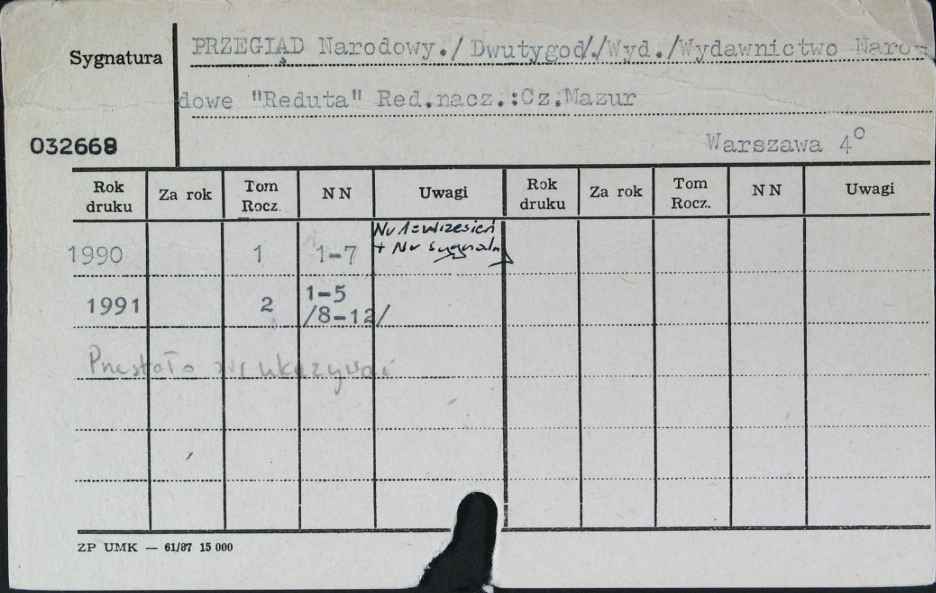 Sygnatura
PRZEGIĄD Narodowy./ Dwutygod/./Wyd./Wydawnictwo Naro-
dowe "Reduta" Red.nacz.:Cz.Mazur
032668
Warszawa 4°
Rok druku Za rok Tom Rocz. NN Uwagi Rok druku Za rok Tom Rocz. NN Uwagi
1990 1 1-7 Nr 1=wrzesień
+ Nr sygnalny
1991 2 1-5
/8-12/
Przestało się ukazywać
ZP UMK — 61/87 15 000